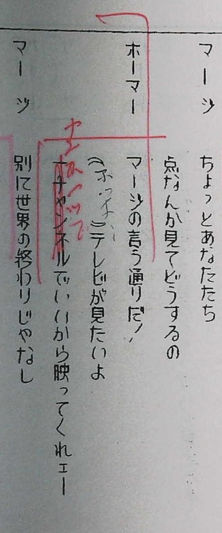 マージ　ちょっとあなたたち
点なんか見てどうするの
ホーマー　マージの言う通りだ！
テレビが見たいよ
チャンネルでいいから映ってくれェー
マージ　別に世界の終わりじゃなし